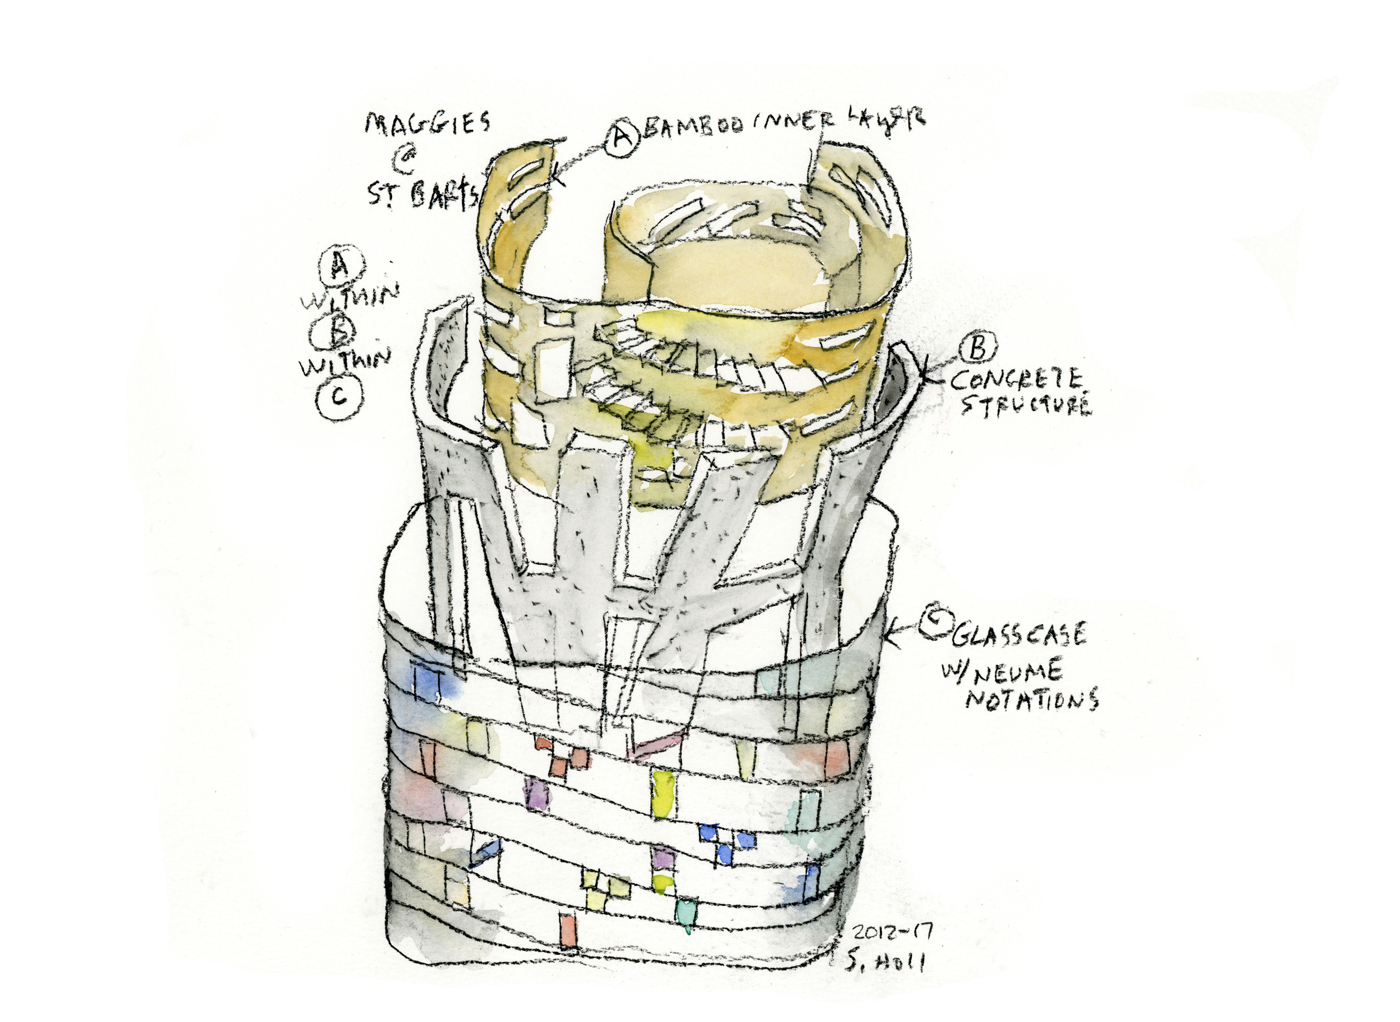 MAGGIES
@
ST BARTS
A BAMBOO INNER LAYER
A
WITHIN
B
WITHIN
C
B
CONCRETE
STRUCTURE
C GLASSCASE
W/ NEUME
NOTATIONS
2012-17
S. Holl